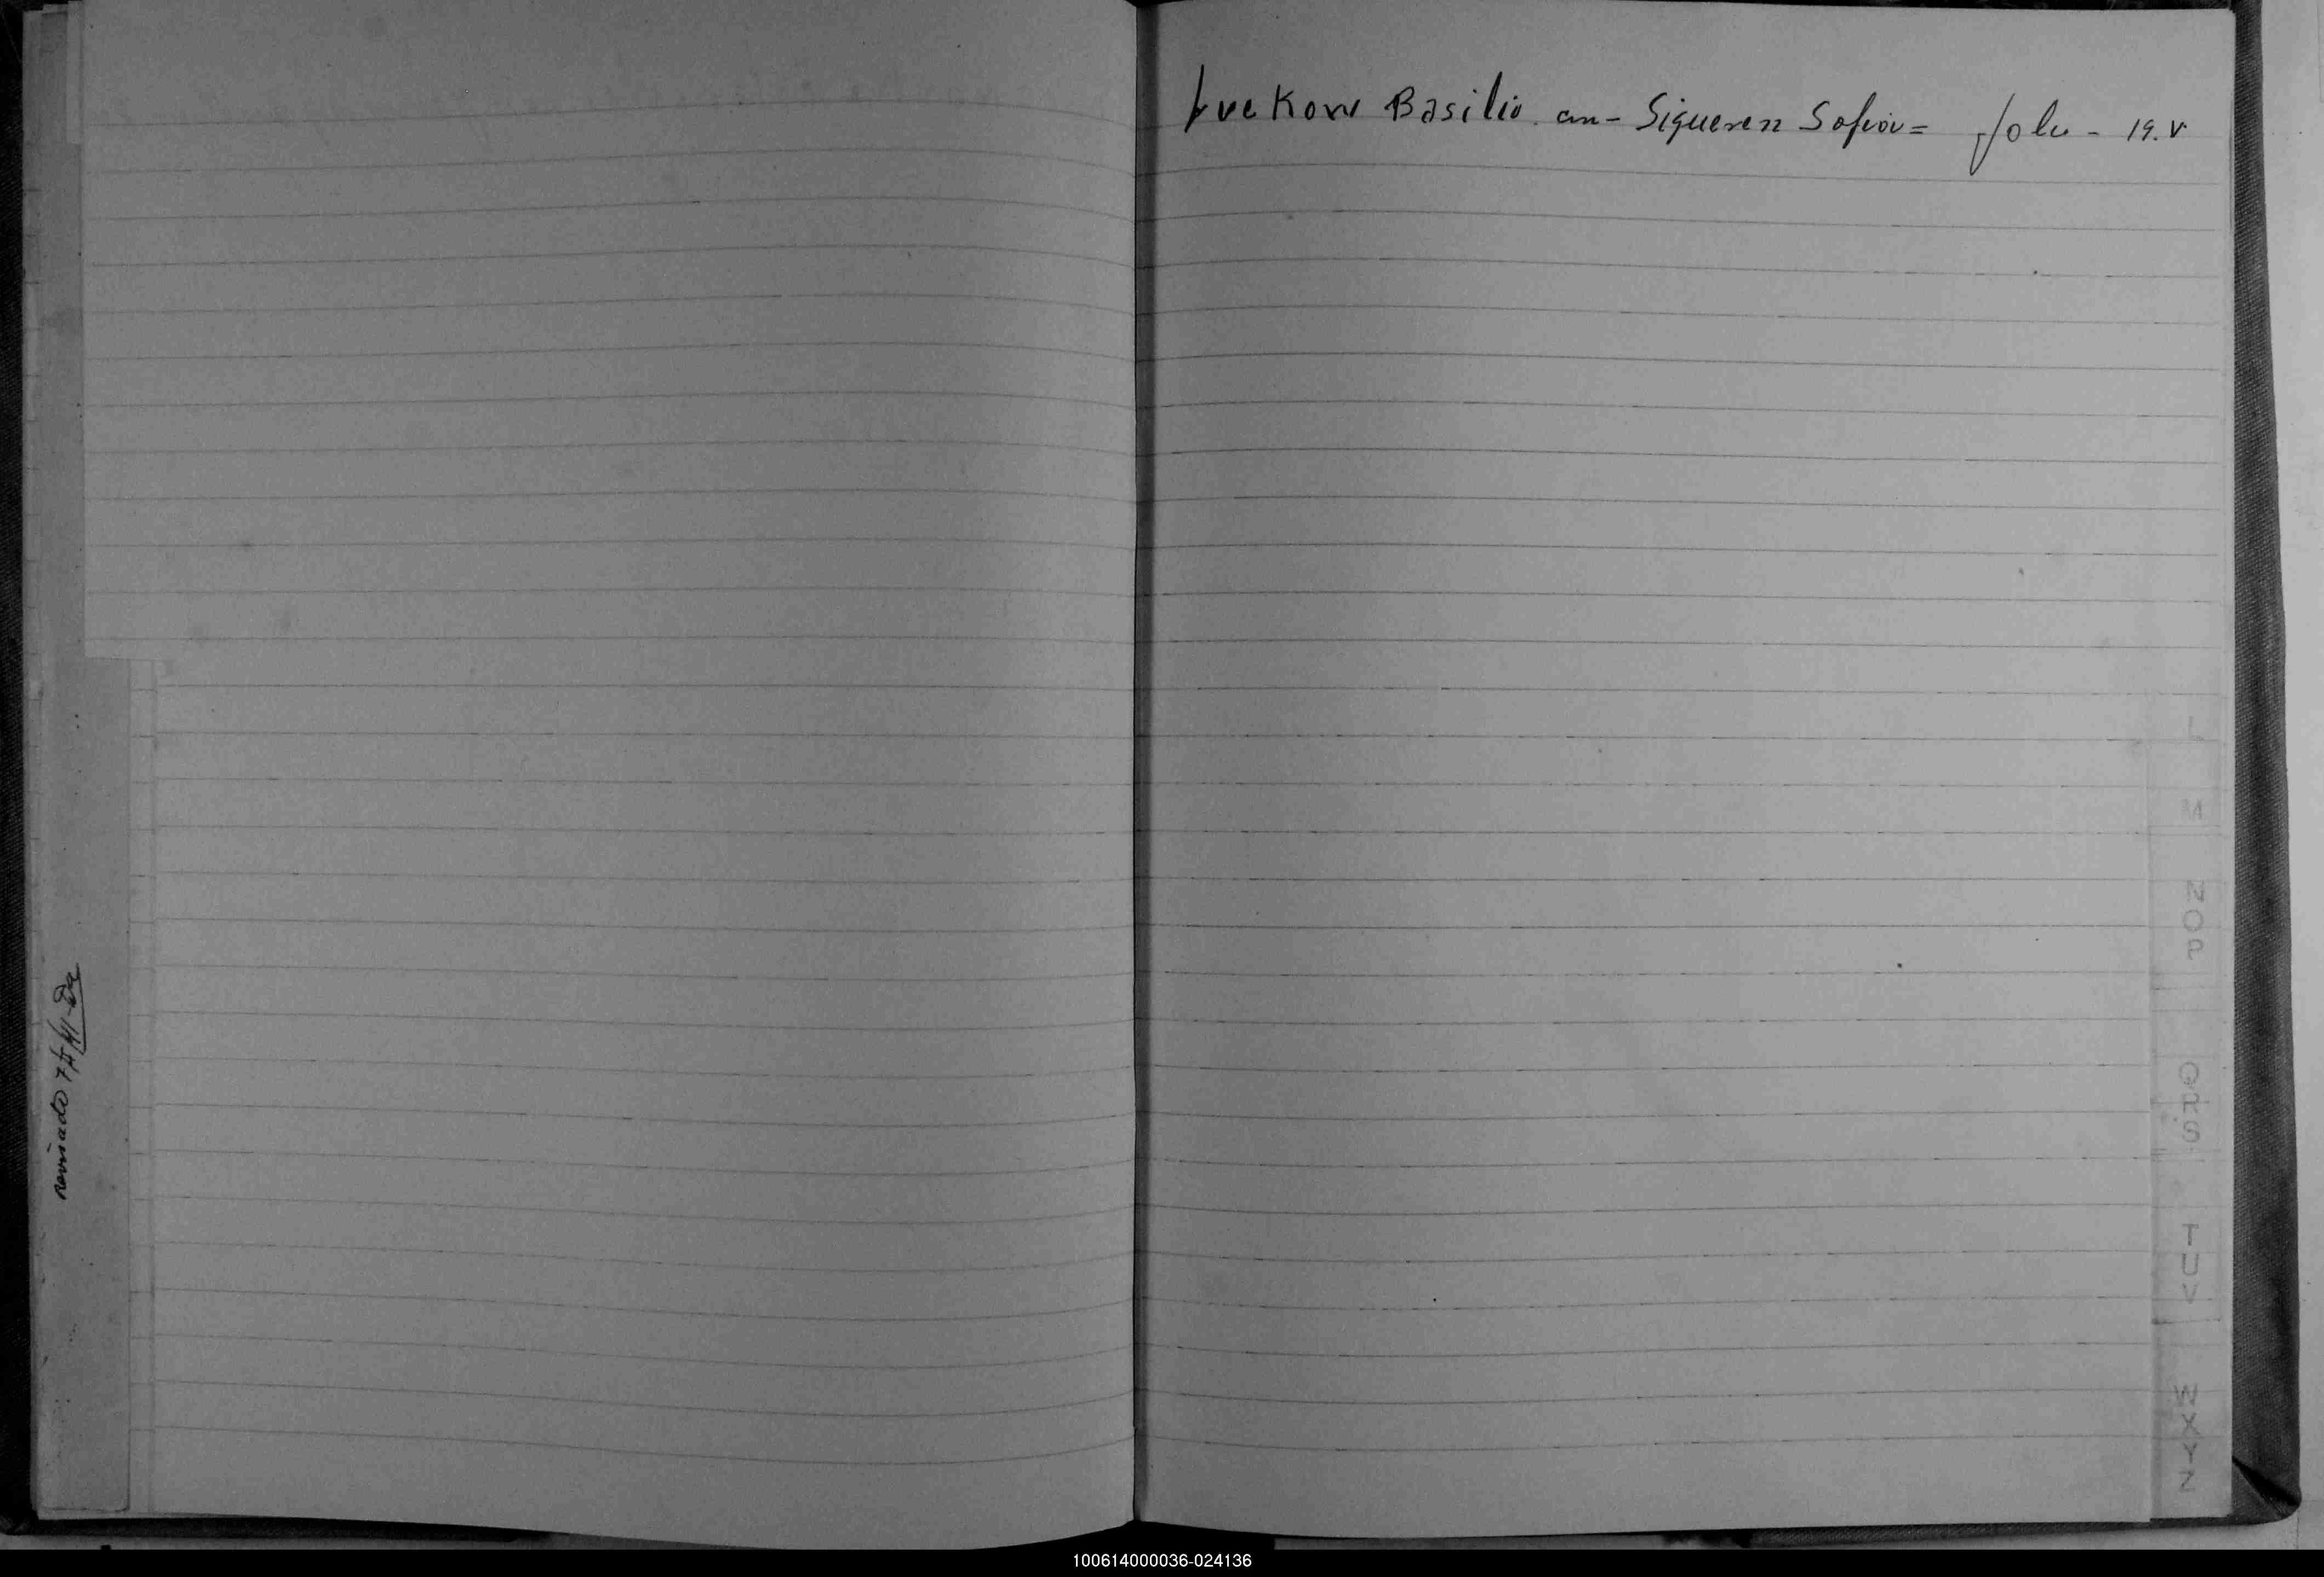 revisado
Basilio. con - Sigueren Sofia = folio - 19. v
L
M
N
O
P
Q
R
S
T
U
V
W
X
Y
Z
100614000036-024136